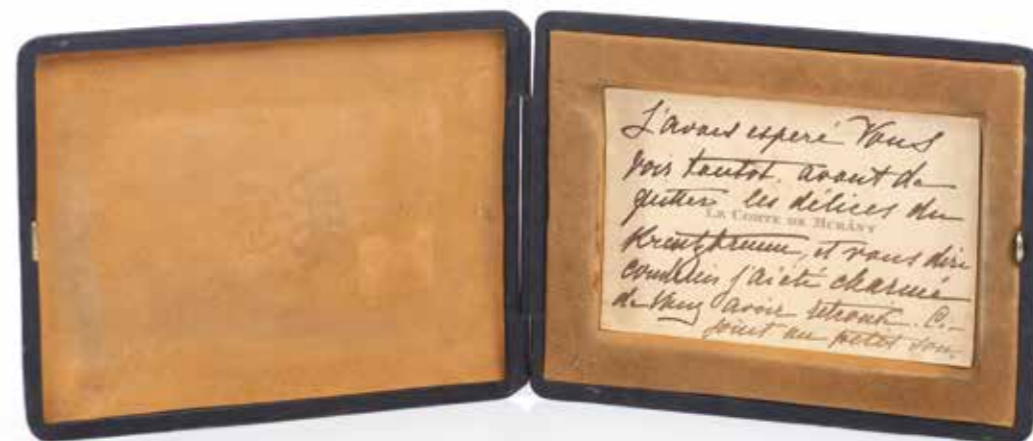 J'avais esperé Vous
voir tantot. avant de
quitter les délices du
LE COMTE DE MURÁNY
Kreutzbrunn, et vous dire
combien j'ai été charmé
de Vous avoir retrouvé. C.-
joint un petit sou-